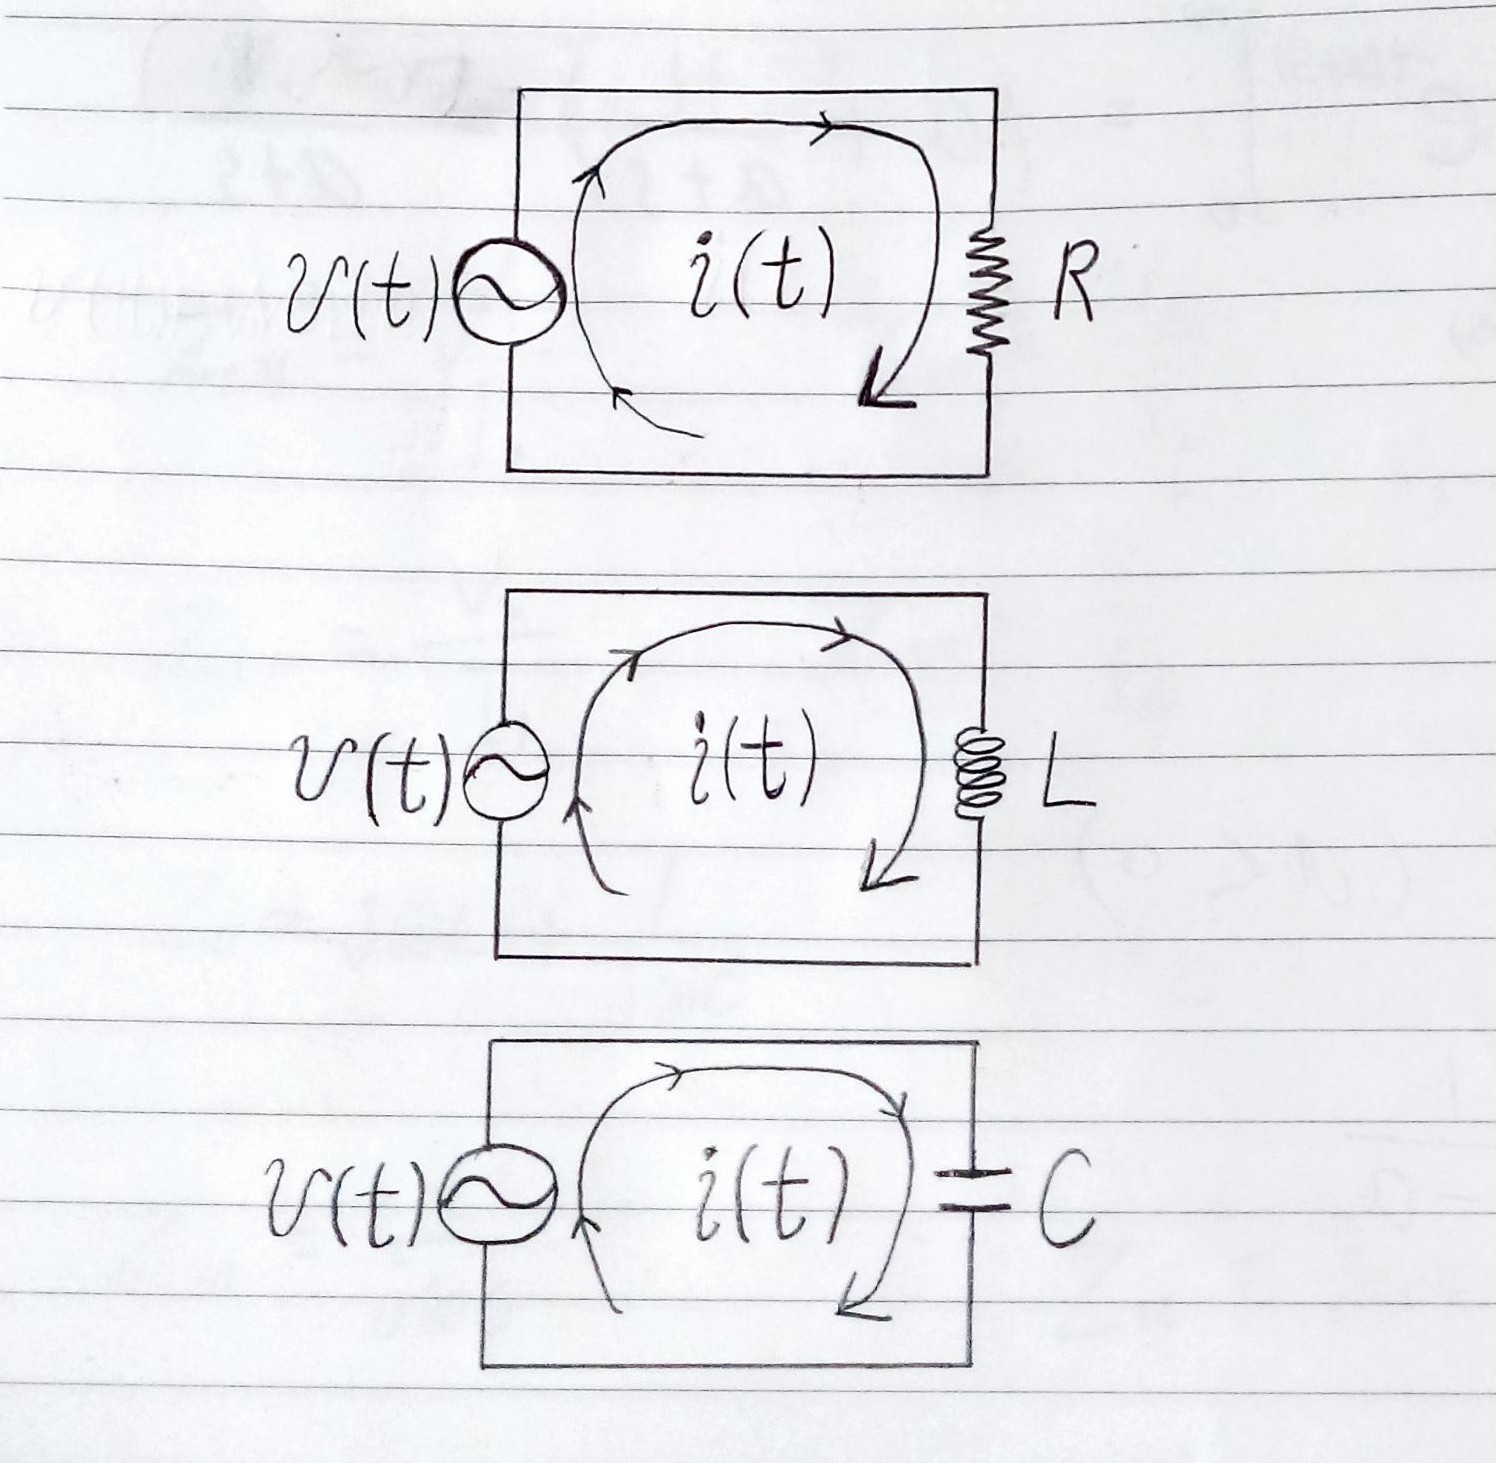 v(t) i(t) R
v(t) i(t) L
v(t) i(t) C